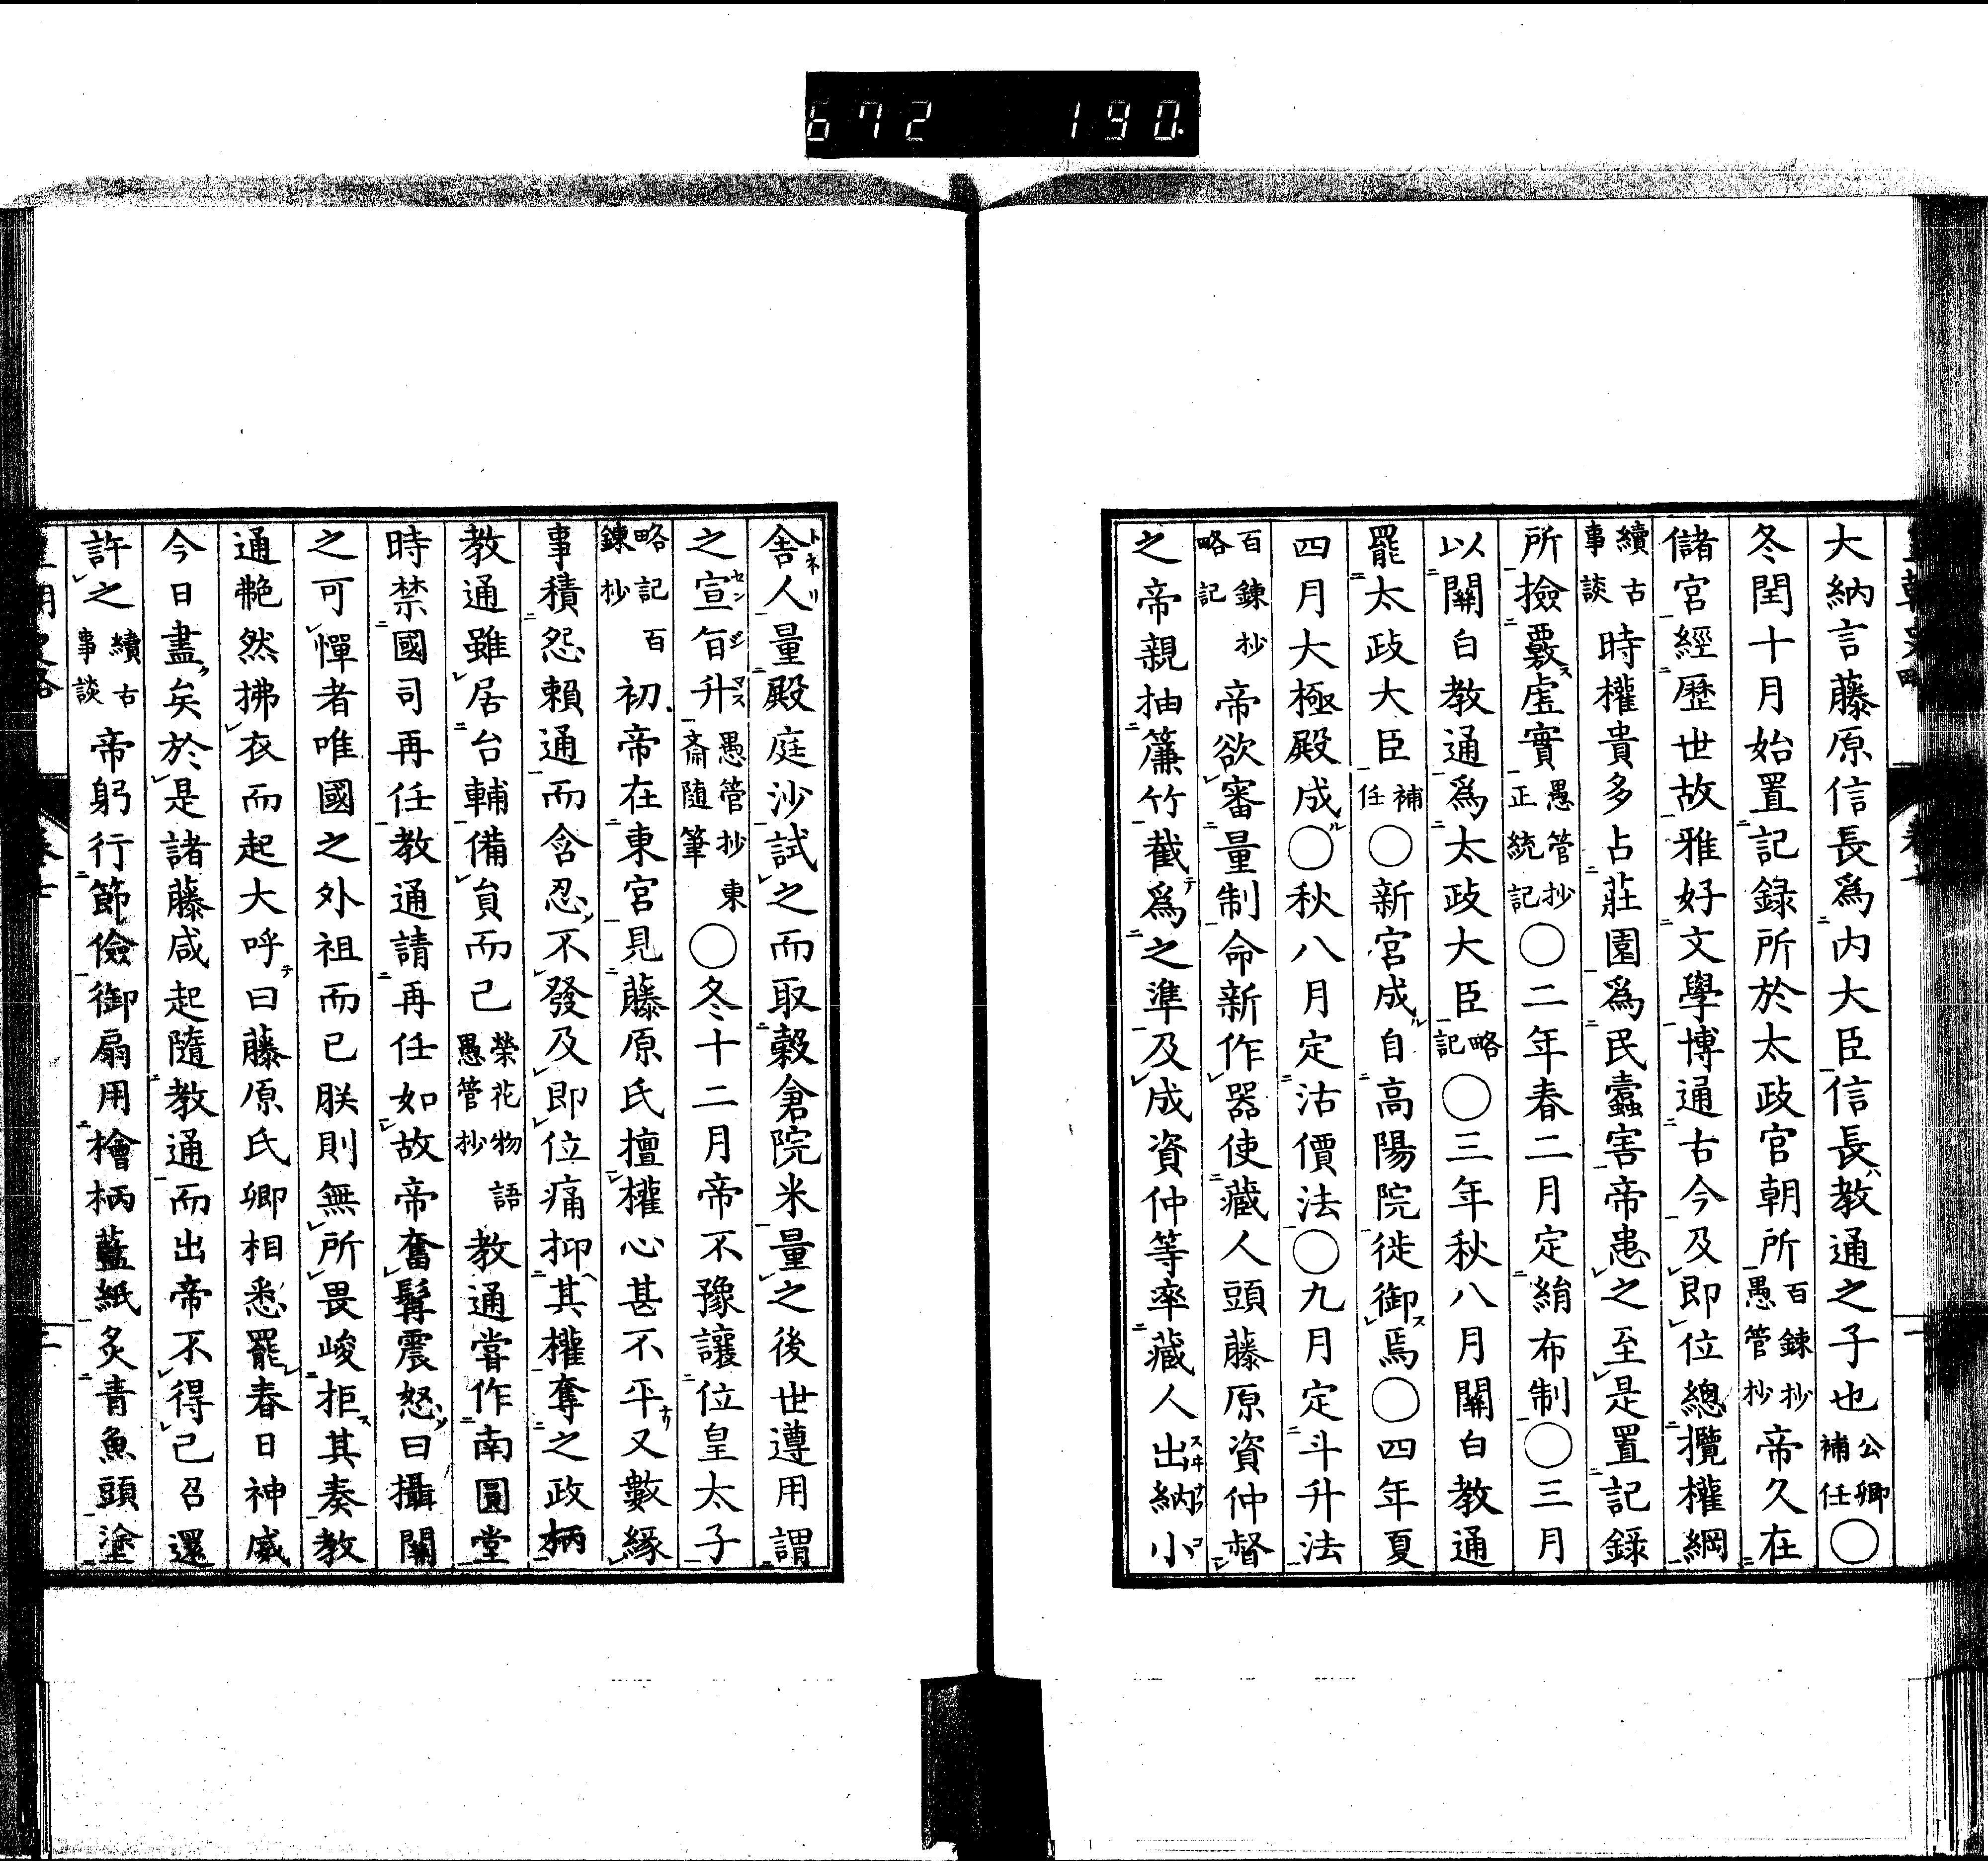 672 190.
大納言藤原信長爲内大臣信長教通之子也公卿補任〇
冬閏十月始置記録所於太政官朝所百錬抄愚管抄帝久在
儲宮經歷世故雅好文學博通古今及即位總攬權綱
續古事談時權貴多占莊園爲民蠹害帝患之至是置記録
所撿覈虛實愚管抄正統記〇二年春二月定絹布制〇三月
以關白教通爲太政大臣略記〇三年秋八月關白教通
罷太政大臣補任〇新宮成自高陽院徙御焉〇四年夏
四月大極殿成〇秋八月定沽價法〇九月定斗升法
百錬抄略記帝欲審量制命新作器使藏人頭藤原資仲督
之帝親抽簾竹截爲之準及成資仲等率藏人出納小
舍人量殿庭沙試之而取穀倉院米量之後世遵用謂
之宣旨升愚管抄東齋隨筆〇冬十二月帝不豫讓位皇太子
略記百鍊抄初帝在東宮見藤原氏擅權心甚不平又數緣
事積怨賴通而含忍不發及即位痛抑其權奪之政柄
教通雖居台輔備員而已榮花物語愚管抄教通嘗作南圓堂
時禁國司再任教通請再任如故帝奮髯震怒曰攝關
之可憚者唯國之外祖而已朕則無所畏峻拒其奏教
通艴然拂衣而起大呼曰藤原氏卿相悉罷春日神威
今日盡矣於是諸藤咸起隨教通而出帝不得已召還
許之續古事談帝躬行節儉御扇用檜柄藍紙炙青魚頭塗